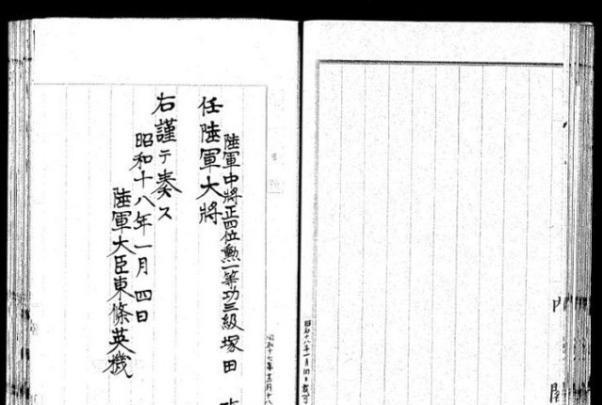 陸軍中將正四位勲一等功三級塚田
任陸軍大將
右謹テ奏ス
昭和十八年一月四日
陸軍大臣東條英機